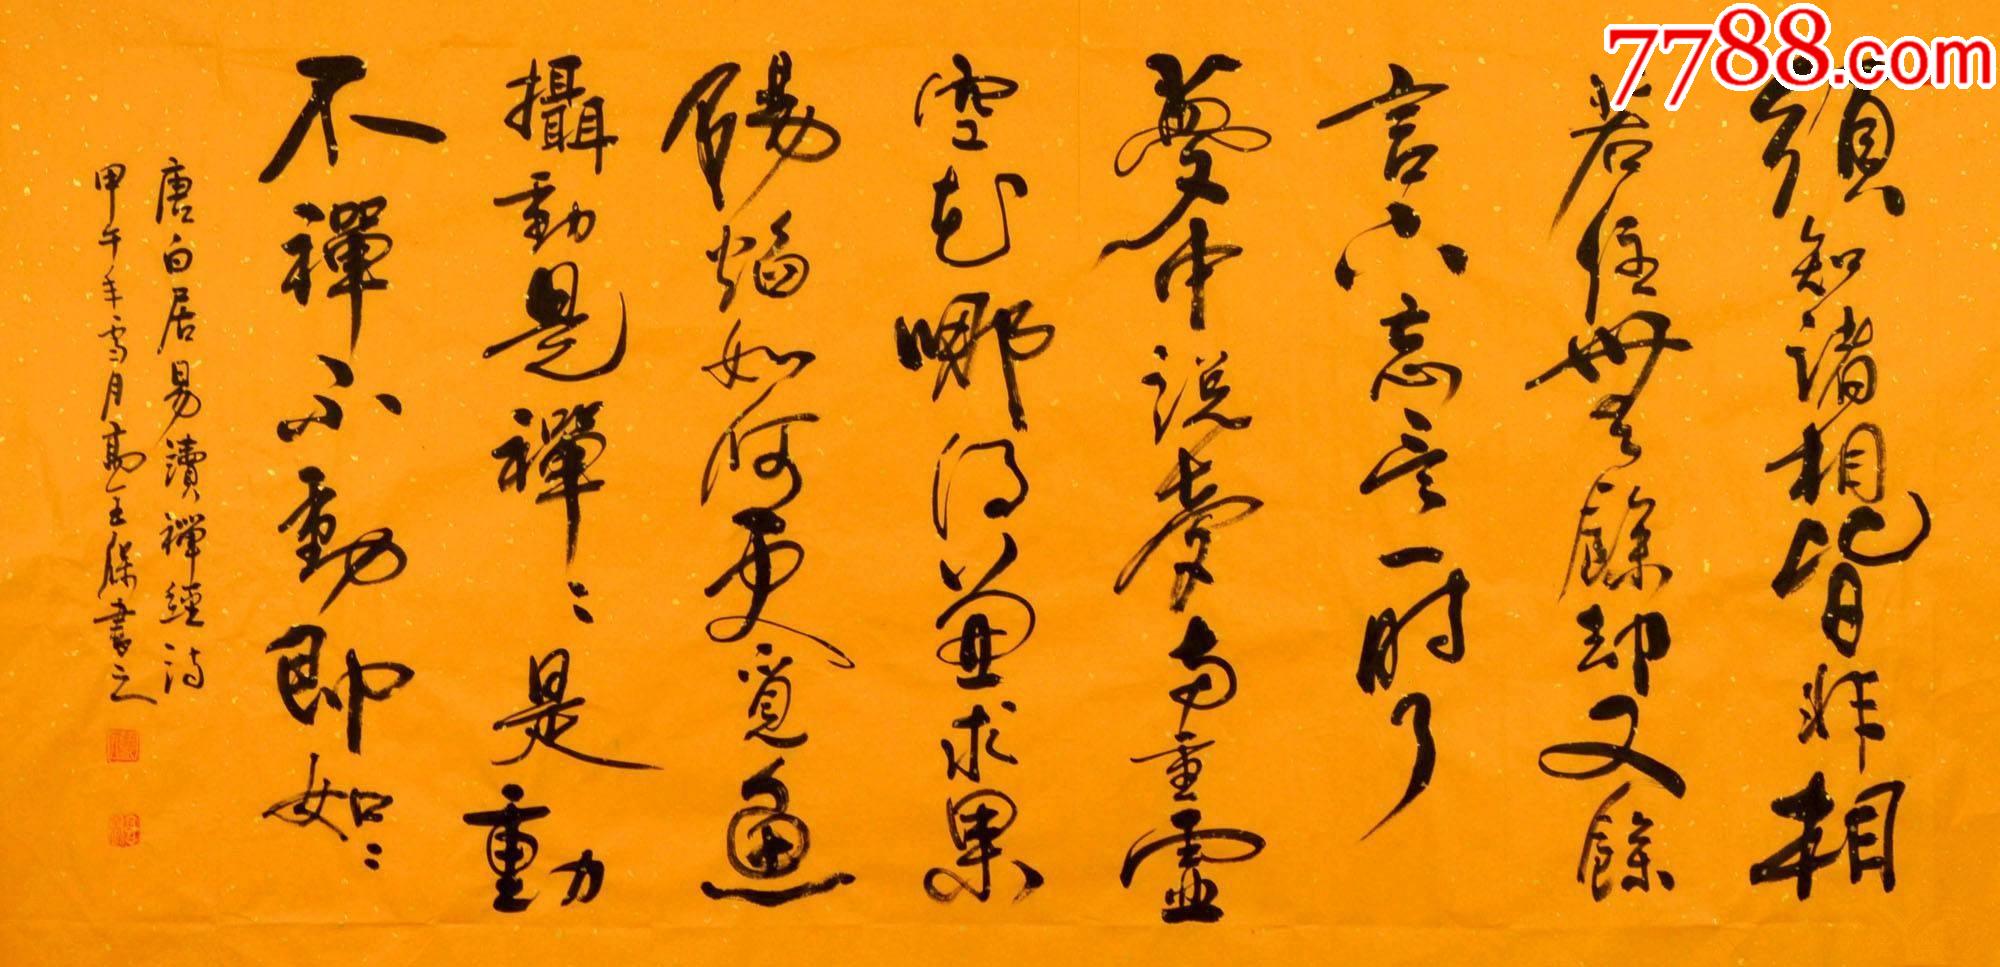 7788.com
須知諸相皆非相
若住無餘却又餘
言下忘言一時了
夢中說夢兩重虛
空花哪得兼求果
陽焰如何更覓魚
攝動是禪〻是動
不禪不動即如〻
唐白居易讀禪經詩
甲午年雪月高玉保書之